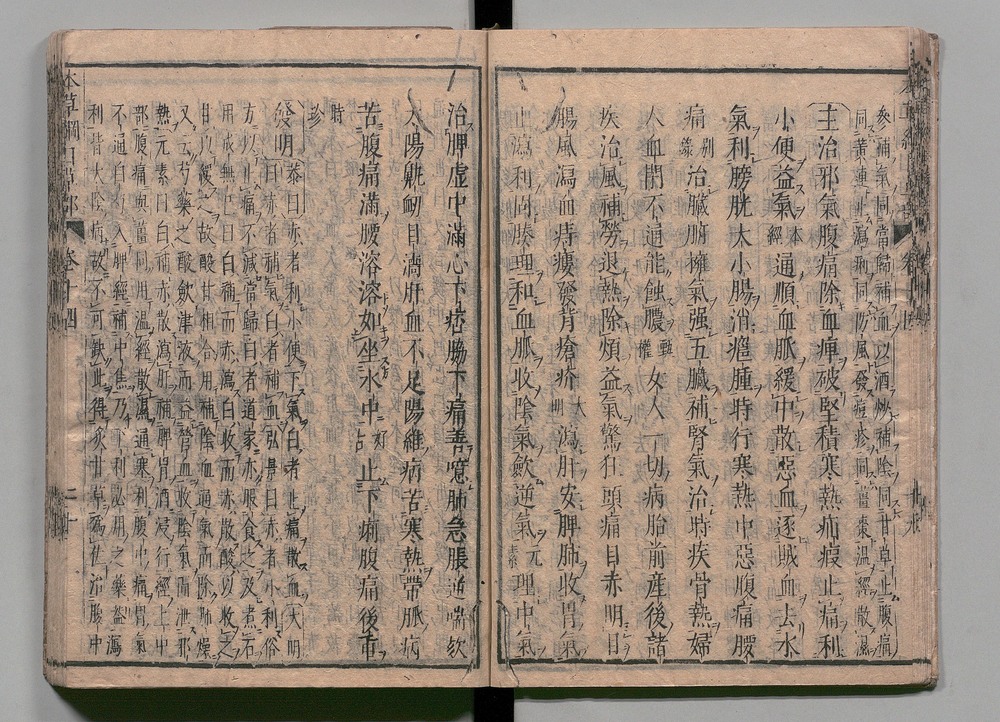 補氣同當歸補血以酒炒補陰同甘草止腹痛
同黃連止瀉利同防風發痘疹同薑棗溫經散濕
主治邪氣腹痛除血痺破堅積寒熱疝瘕止痛利
小便益氣本經通順血脈緩中散惡血逐賊血去水
氣利膀胱大小腸消癰腫時行寒熱中惡腹痛腰
痛別錄治臟腑擁氣强五臟補腎氣治時疾骨熱婦
人血閉不通能蝕膿甄權女人一切病胎前産後諸
疾治風補勞退熱除煩益氣驚狂頭痛目赤明目
腸風瀉血痔瘻發背瘡疥大明瀉肝安脾肺收胃氣
止瀉利固腠理和血脈收陰氣斂逆氣元素理中氣
治脾虛中滿心下痞脇下痛善噫肺急脹逆喘欬
太陽鼽衄目濇肝血不足陽維病苦寒熱帶脈病
苦腹痛滿腰溶溶如坐水中好古止下痢腹痛後重
時珍
發明恭曰赤者利小便下氣白者止痛散血大明
曰赤者補氣白者補血弘景曰赤者小利俗
方以止痛不減當歸白者道家亦服食之及煮石
用成無己曰白補而赤瀉白收而赤散酸以收之
甘以緩之故酸甘相合用補陰血通氣而除肺燥
又云芍藥之酸斂津液而益營血收陰氣而泄邪
熱元素曰白補赤散瀉肝補脾胃酒浸行經止中
部腹痛與薑同用溫經散濕通塞利腹中痛胃氣
不通白芍入脾經補中焦乃下利必用之藥蓋瀉
利皆太陰病故不可缺此得炙甘草爲佐治腹中
本草綱目
卷十四
二十